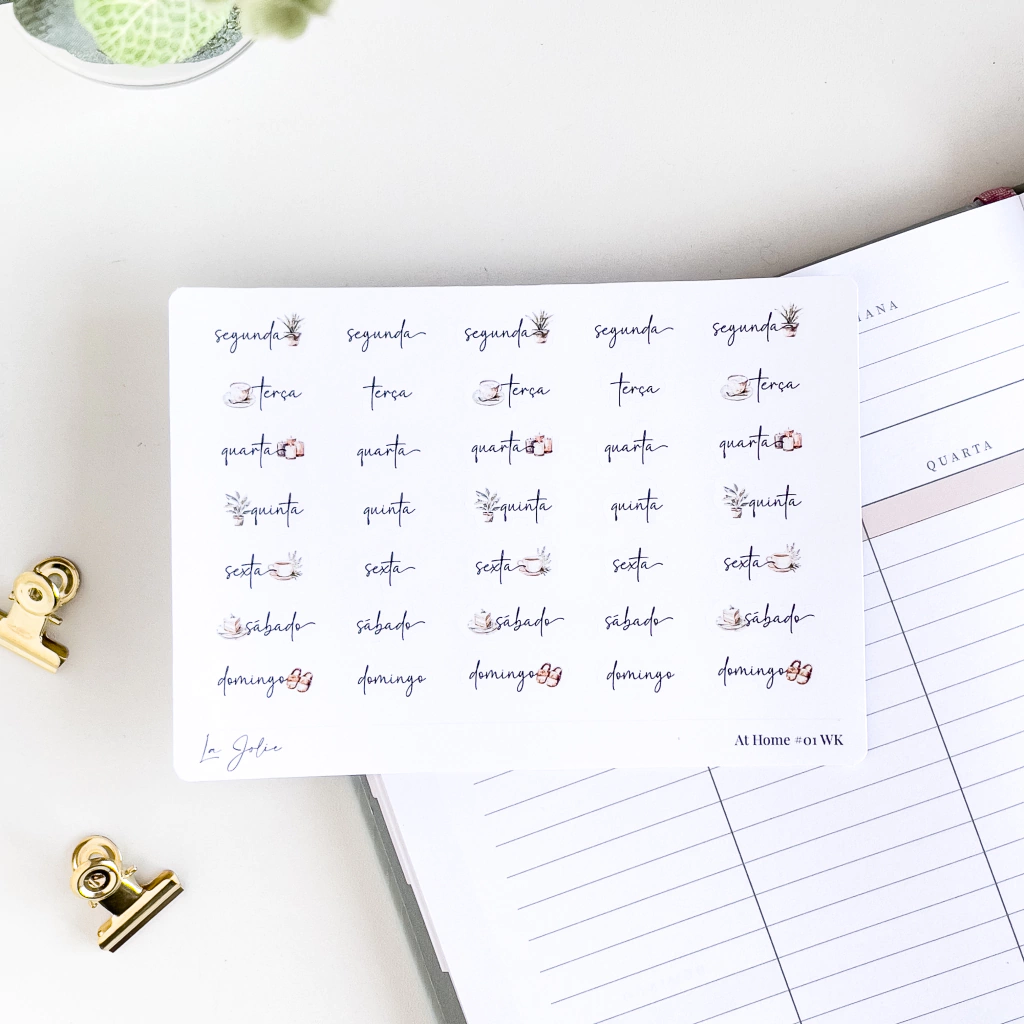 segunda segunda segunda segunda segunda
terça terça terça terça terça
quarta quarta quarta quarta quarta
quinta quinta quinta quinta quinta
sexta sexta sexta sexta sexta
sábado sábado sábado sábado sábado
domingo domingo domingo domingo domingo
La Jolie
At Home #01 WK
QUARTA